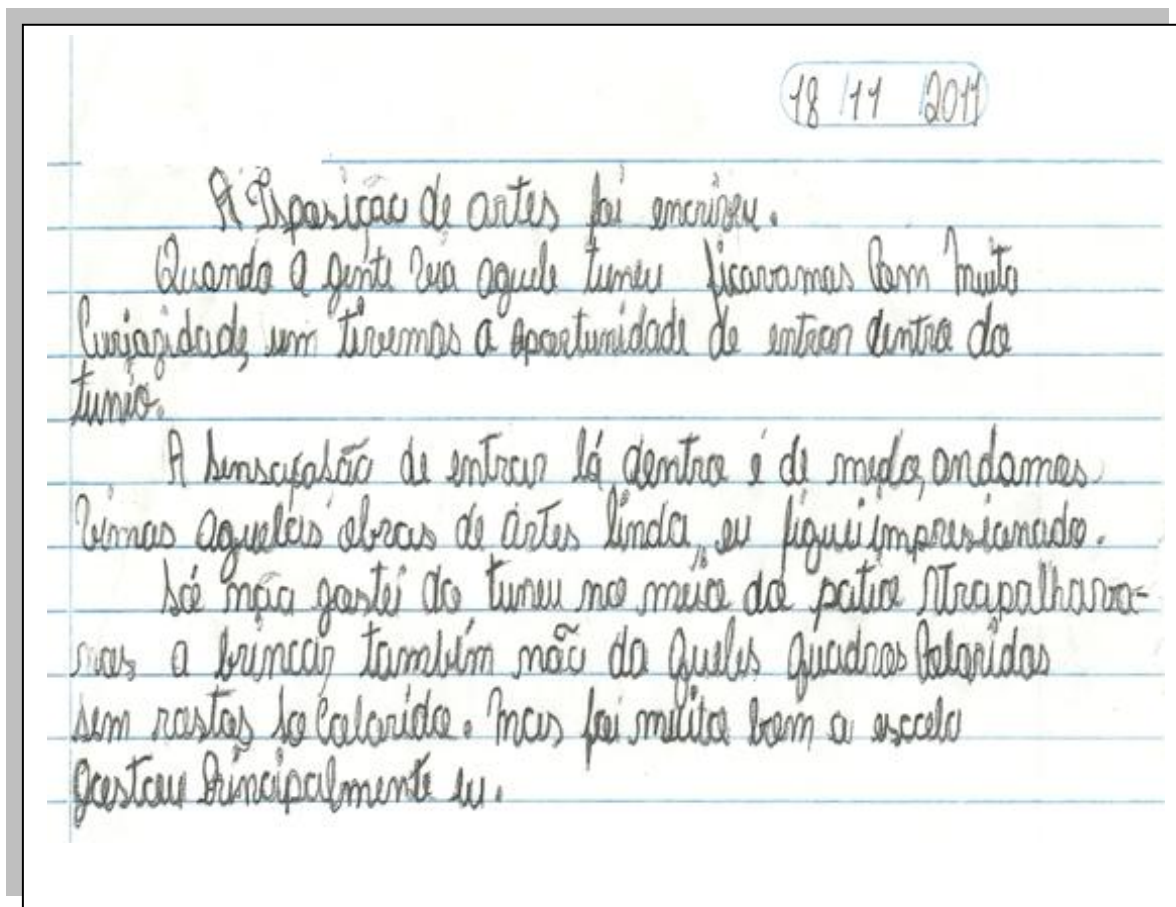 18/11/2011
A Isposição de artes foi encriveu.
Quando a gente via aquele tuneu ficavamos com muita
Curiozidade, um tivemos a oportunidade de entrar dentro do
tunio.
A de entrar lá dentro é de medo, andamos
vimos aquelas obras de artes linda, eu fiquei impresionado.
Só não gostei do tuneu no meio do patio Atrapalhava-
mos a brincar, também não da queles quadros Coloridos
sem rostos so Colorido. Mas foi muito bom a escola
gostou Principalmente eu.